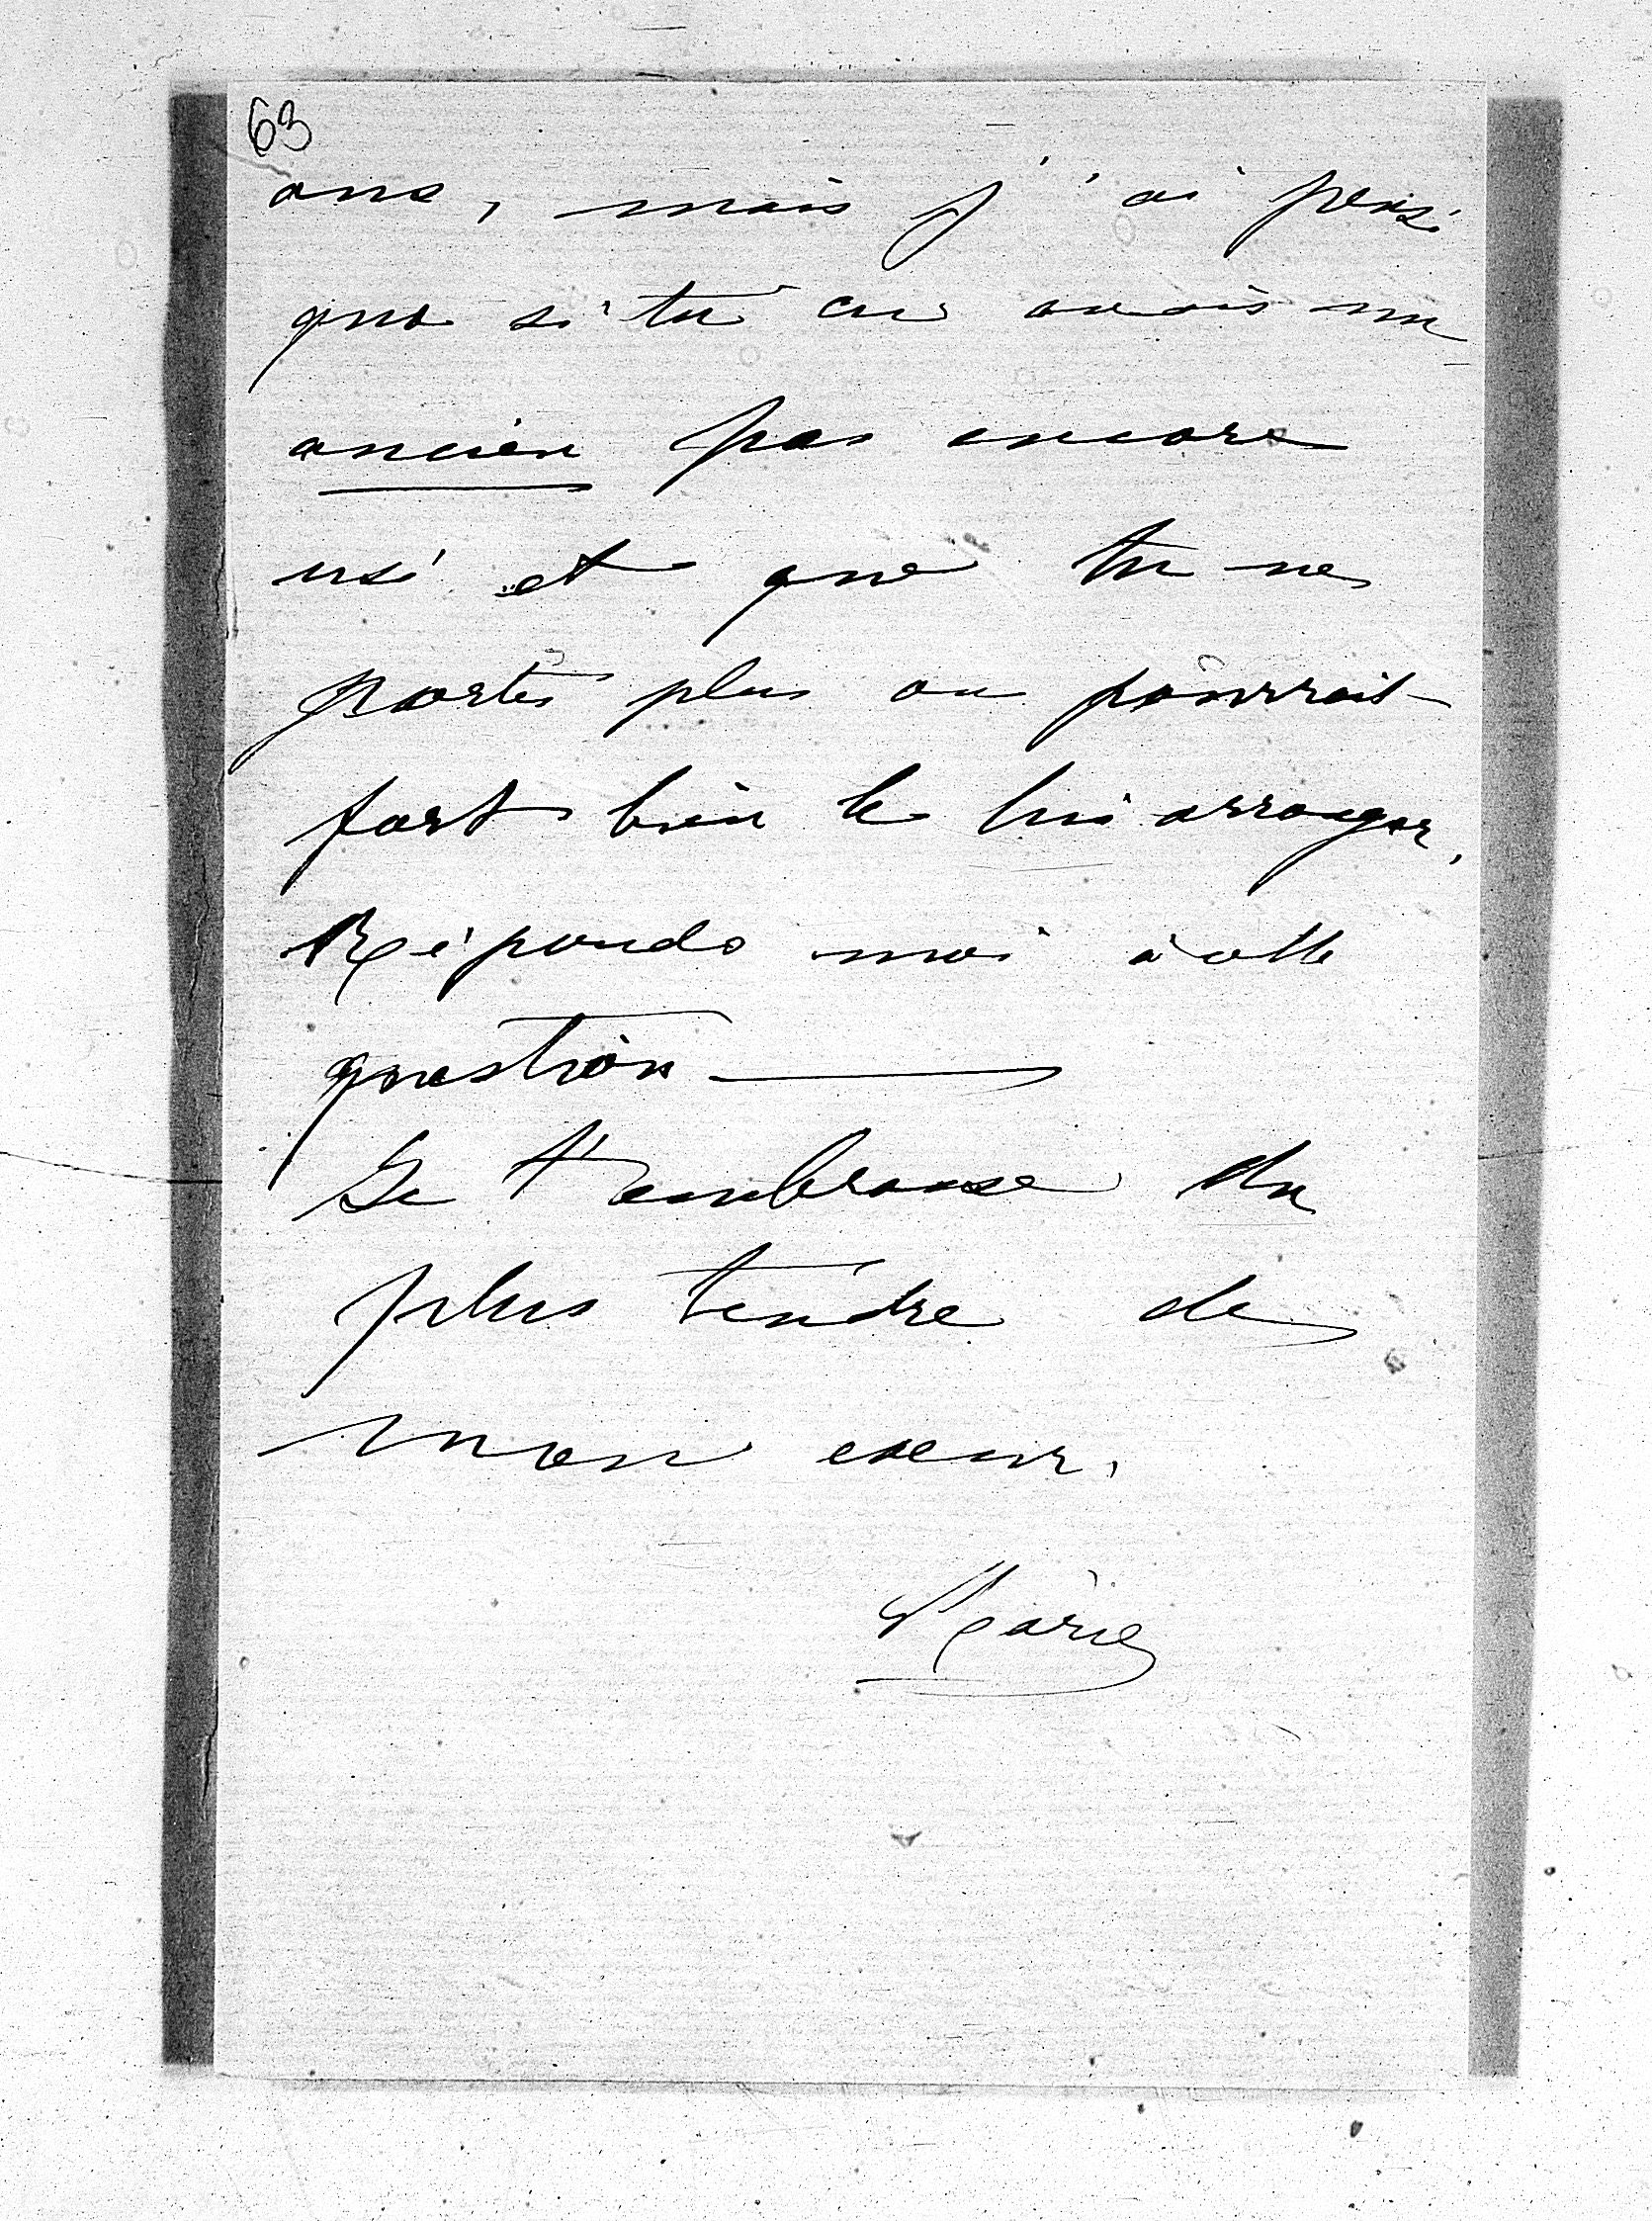 63
ans, mais j'ai pensé
que si tu en avais un
ancien pas encore
usé et que tu ne
portes plus on pourrait
fort bien le lui arranger.
Réponds moi à cette
question
Je t'embrasse du
plus tendre de
mon coeur.
Marie